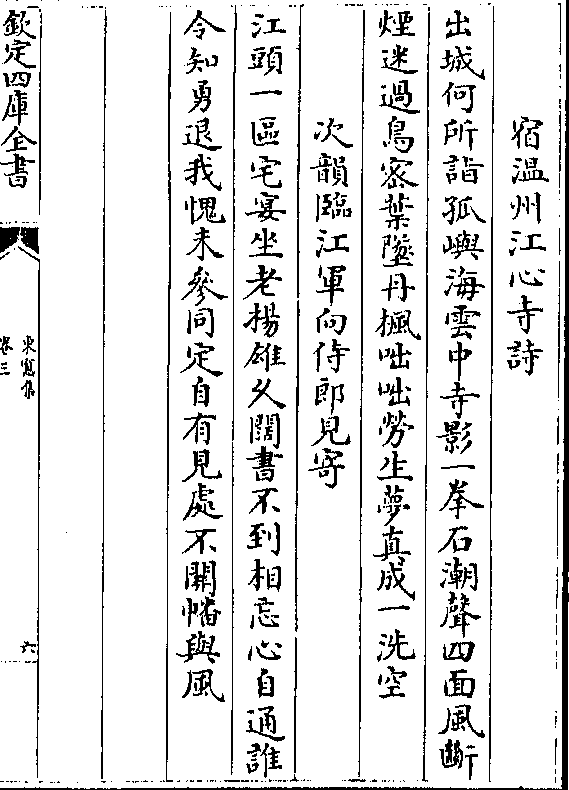 宿温州江心寺詩
出城何所詣孤嶼海雲中寺影一拳石潮聲四面風斷
煙迷過鳥密葉墜丹楓咄咄勞生夢真成一洗空
次韻臨江軍向侍郎見寄
江頭一區宅宴坐老楊雄久闊書不到相忘心自通誰
令知勇退我愧未參同定自有見處不關幡與風
欽定四庫全書
東窗集
卷三
六